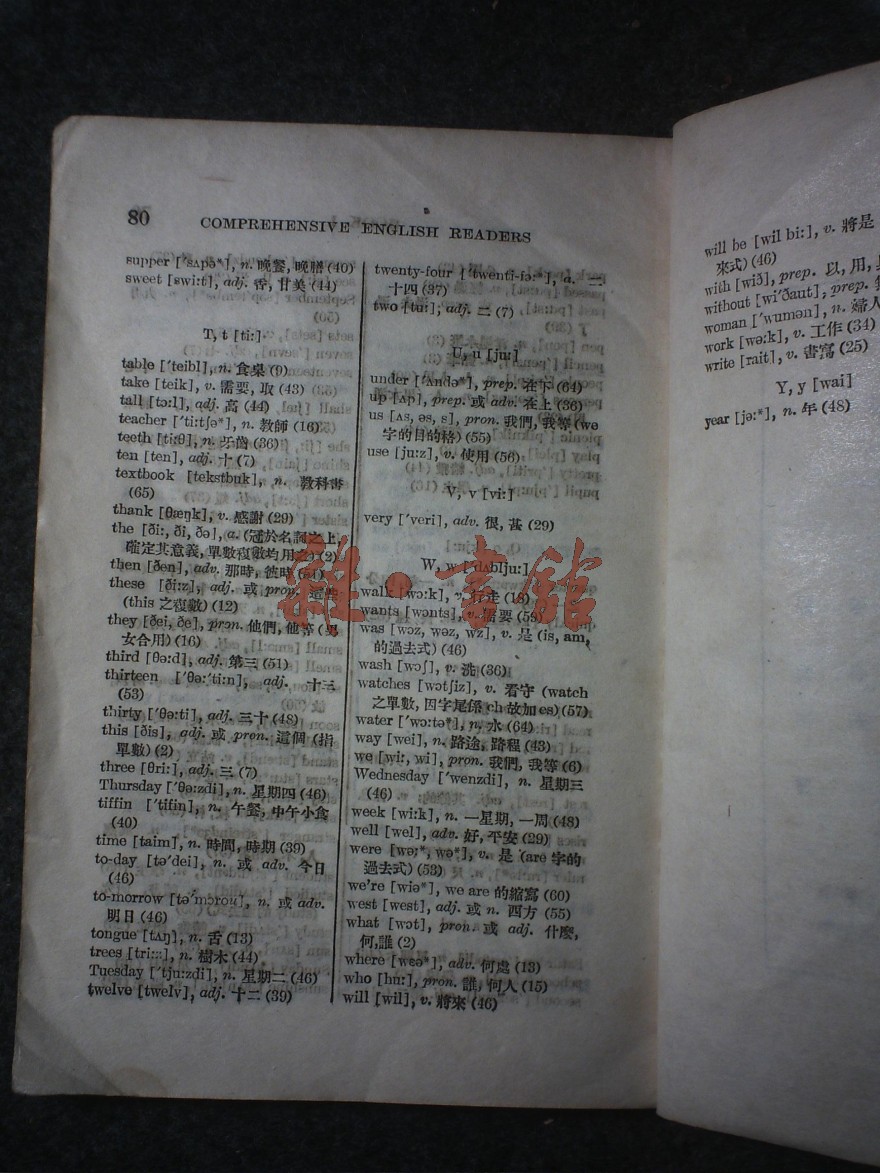 80
COMPREHENSIVE ENGLISH READERS
supper ['sʌpə*], n. 晚餐, 晚膳 (40)
sweet [swi:t], adj. 香, 甘美 (44)
T, t [ti:]
table ['teibl], n. 食桌 (9)
take [teik], v. 需要, 取 (43)
tall [tɔ:l], adj. 高 (44)
teacher ['ti:tʃə*], n. 教師 (16)
teeth [ti:θ], n. 牙齒 (36)
ten [ten], adj. 十 (7)
textbook [tekstbuk], n. 教科書
(65)
thank [θæŋk], v. 感謝 (29)
the [ði:, ði, ðə], a. (冠於名詞之上
確定其意義, 單數複數均用之) (2)
then [ðen], adv. 那時, 彼時 (54)
these [ði:z], adj. 或 pron. 這些
(this 之複數) (12)
they [ðei, ðe], pron. 他們, 他等 (男
女合用) (16)
third [θə:d], adj. 第三 (51)
thirteen ['θə:'ti:n], adj. 十三
(53)
thirty ['θə:ti], adj. 三十 (48)
this [ðis], adj. 或 pron. 這個 (指
單數) (2)
three [θri:], adj. 三 (7)
Thursday ['θə:zdi], n. 星期四 (46)
tiffin ['tifin], n. 午餐, 中午小食
(40)
time [taim], n. 時間, 時期 (39)
to-day [tə'dei], n. 或 adv. 今日
(46)
to-morrow [tə'mɔrou], n. 或 adv.
明日 (46)
tongue [tʌŋ], n. 舌 (13)
trees [tri:z], n. 樹木 (44)
Tuesday ['tju:zdi], n. 星期二 (46)
twelve [twelv], adj. 十二 (39)
twenty-four ['twenti-fɔ:*], a. 二
十四 (37)
two [tu:], adj. 二 (7)
U, u [ju:]
under ['ʌndə*], prep. 在下 (64)
up [ʌp], prep. 或 adv. 在上 (36)
us [ʌs, əs, s], pron. 我們, 我等 (we
字的目的格) (55)
use [ju:z], v. 使用 (56)
V, v [vi:]
very ['veri], adv. 很, 甚 (29)
W, w ['dʌblju:]
walk [wɔ:k], v. 行走 (18)
wants [wɔnts], v. 需要 (59)
was [wɔz, wəz, wz], v. 是 (is, am,
的過去式) (46)
wash [wɔʃ], v. 洗 (36)
watches [wɔtʃiz], v. 看守 (watch
之單數, 因字尾係 ch 故加 es) (57)
water ['wɔ:tə*], n. 水 (64)
way [wei], n. 路途, 路程 (43)
we [wi:, wi], pron. 我們, 我等 (6)
Wednesday ['wenzdi], n. 星期三
(46)
week [wi:k], n. 一星期, 一周 (48)
well [wel], adv. 好, 平安 (29)
were [wə:*, wə*], v. 是 (are 字的
過去式) (53)
we're [wiə*], we are 的縮寫 (60)
west [west], adj. 或 n. 西方 (55)
what [wɔt], pron. 或 adj. 什麼,
何, 誰 (2)
where [wɛə*], adv. 何處 (13)
who [hu:], pron. 誰, 何人 (15)
will [wil], v. 將來 (46)
will be [wil bi:], v. 將是
來式) (46)
with [wið], prep. 以, 用,
without [wi'ðaut], prep.
woman ['wumən], n. 婦人
work [wə:k], v. 工作 (34)
write [rait], v. 書寫 (25)
Y, y [wai]
year [jə:*], n. 年 (48)
雜·書館